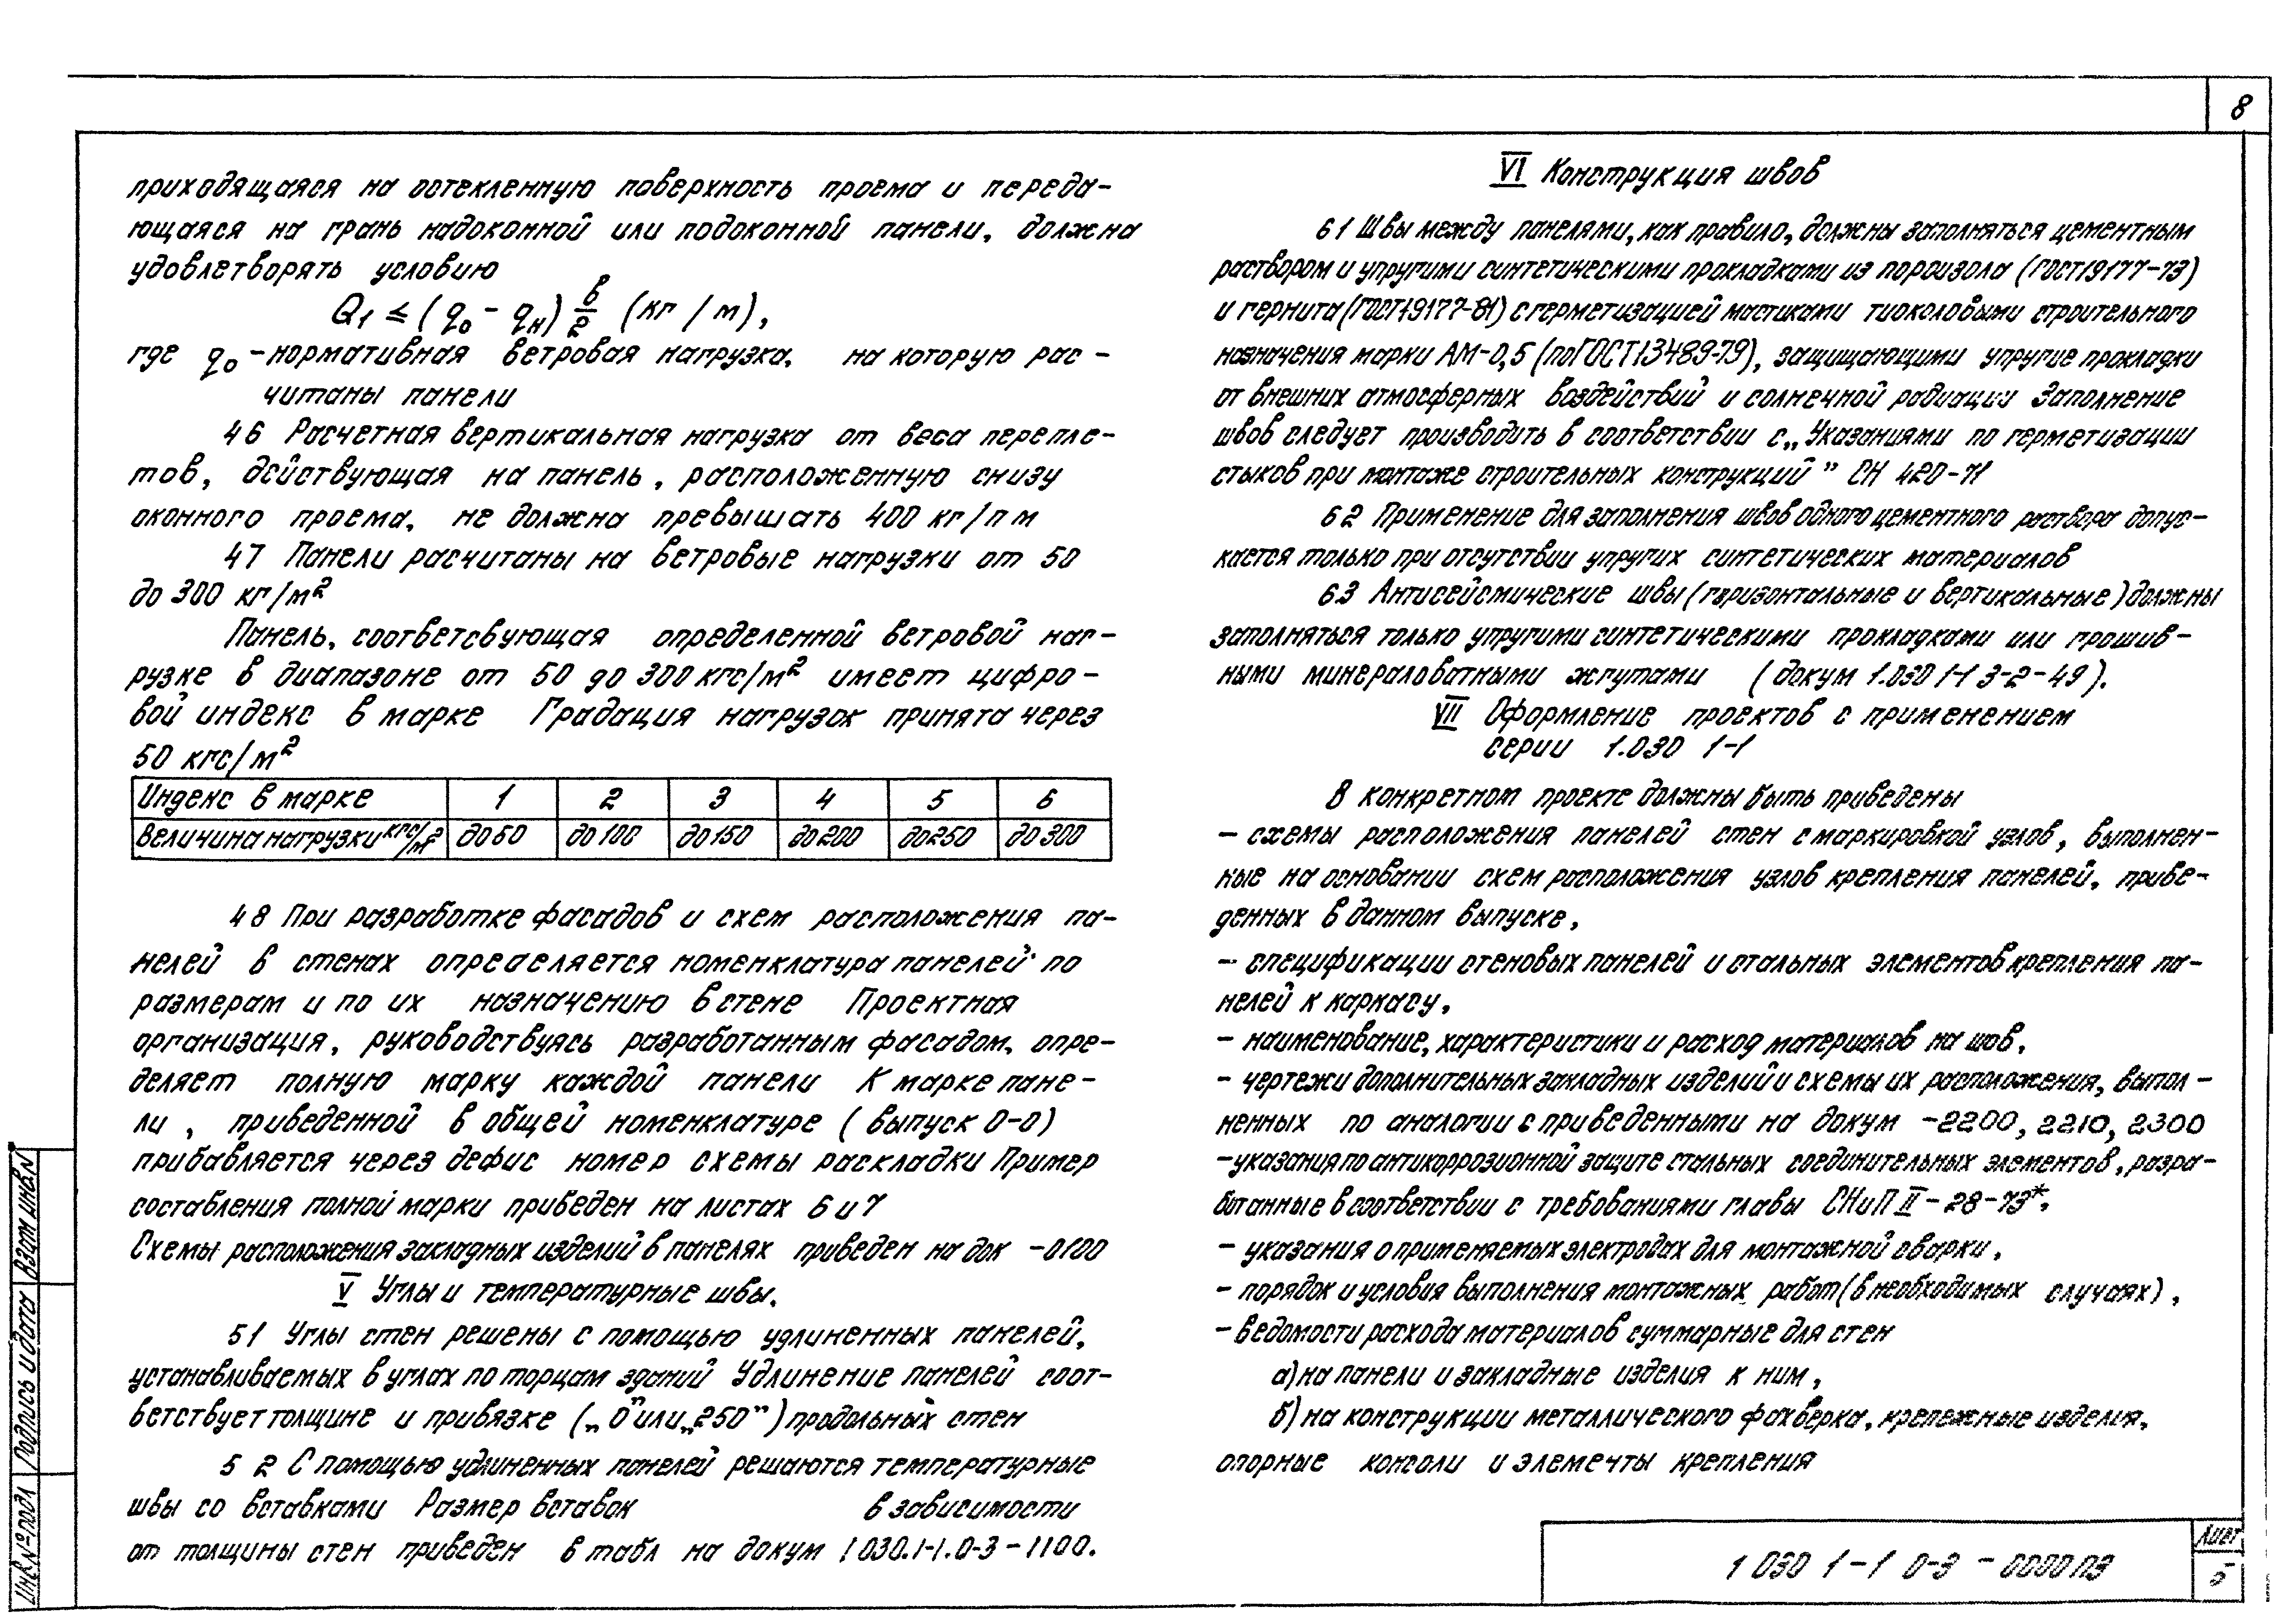 8
приходящаяся на остекленную поверхность проема и переда-
ющаяся на грань надоконной или подоконной панели, должна
удовлетворять условию
Q₁ ≤ (q₀ - qн) в/2 (кг/м),
где q₀ - нормативная ветровая нагрузка, на которую рас-
читаны панели
4 6 Расчетная вертикальная нагрузка от веса перепле-
тов, действующая на панель, расположенную снизу
оконного проема, не должна превышать 400 кг/п м
4 7 Панели расчитаны на ветровые нагрузки от 50
до 300 кг/м²
Панель, соответсвующая определенной ветровой наг-
рузке в диапазоне от 50 до 300 кгс/м² имеет цифро-
вой индекс в марке Градация нагрузок принята через
50 кгс/м²
Индекс в марке 1 2 3 4 5 6
Величина нагрузки кгс/м² до 50 до 100 до 150 до 200 до 250 до 300
4 8 При разработке фасадов и схем расположения па-
нелей в стенах определяется номенклатура панелей по
размерам и по их назначению в стене Проектная
организация, руководствуясь разработанным фасадом, опре-
деляет полную марку каждой панели К марке пане-
ли, приведенной в общей номенклатуре (выпуск 0-0)
прибавляется через дефис номер схемы раскладки Пример
составления полной марки приведен на листах 6 и 7
Схемы расположения закладных изделий в панелях приведен на док -0100
V Углы и температурные швы.
5 1 Углы стен решены с помощью удлиненных панелей,
устанавливаемых в углах по торцам зданий Удлинение панелей соот-
ветствует толщине и привязке („0" или „250") продольных стен
5 2 С помощью удлиненных панелей решаются температурные
швы со вставками Размер вставок в зависимости
от толщины стен приведен в табл на докум 1 030.1-1.0-3-1100.
VI Конструкция швов
6 1 Швы между панелями, как правило, должны заполняться цементным
раствором и упругими синтетическими прокладками из пороизола (ГОСТ 19177-73)
и гернита (ГОСТ 19177-81) с герметизацией мастиками тиоколовыми строительного
назначения марки АМ-0,5 (по ГОСТ 13489-79), защищающими упругие прокладки
от внешних атмосферных воздействий и солнечной радиации Заполнение
швов следует производить в соответствии с „Указаниями по герметизации
стыков при монтаже строительных конструкций" СН 420-71
6 2 Применение для заполнения швов одного цементного раствора допус-
кается только при отсутствии упругих синтетических материалов
6.3 Антисейсмические швы (горизонтальные и вертикальные) должны
заполняться только упругими синтетическими прокладками или прошив-
ными минераловатными жгутами (докум 1.030 1-1 3-2-49).
VII Оформление проектов с применением
серии 1.030 1-1
В конкретном проекте должны быть приведены
- схемы расположения панелей стен с маркировкой узлов, выполнен-
ные на основании схем расположения узлов крепления панелей, приве-
денных в данном выпуске,
- спецификации стеновых панелей и стальных элементов крепления па-
нелей к каркасу,
- наименование, характеристики и расход материалов на шов,
- чертежи дополнительных закладных изделий и схемы их расположения, выпол-
ненных по аналогии с приведенными на докум -2200, 2210, 2300
- указания по антикоррозионной защите стальных соединительных элементов, разра-
ботанные в соответствии с требованиями главы СНиП II-28-73*,
- указания о применяемых электродах для монтажной сварки,
- порядок и условия выполнения монтажных работ (в необходимых случаях),
- ведомости расхода материалов суммарные для стен
а) на панели и закладные изделия к ним,
б) на конструкции металлического фахверка, крепежные изделия,
опорные консоли и элементы крепления
1 030 1-1 0-3 - 0000 ПЗ
Лист
5
Инв.№ подл Подпись и дата Взам инв.N